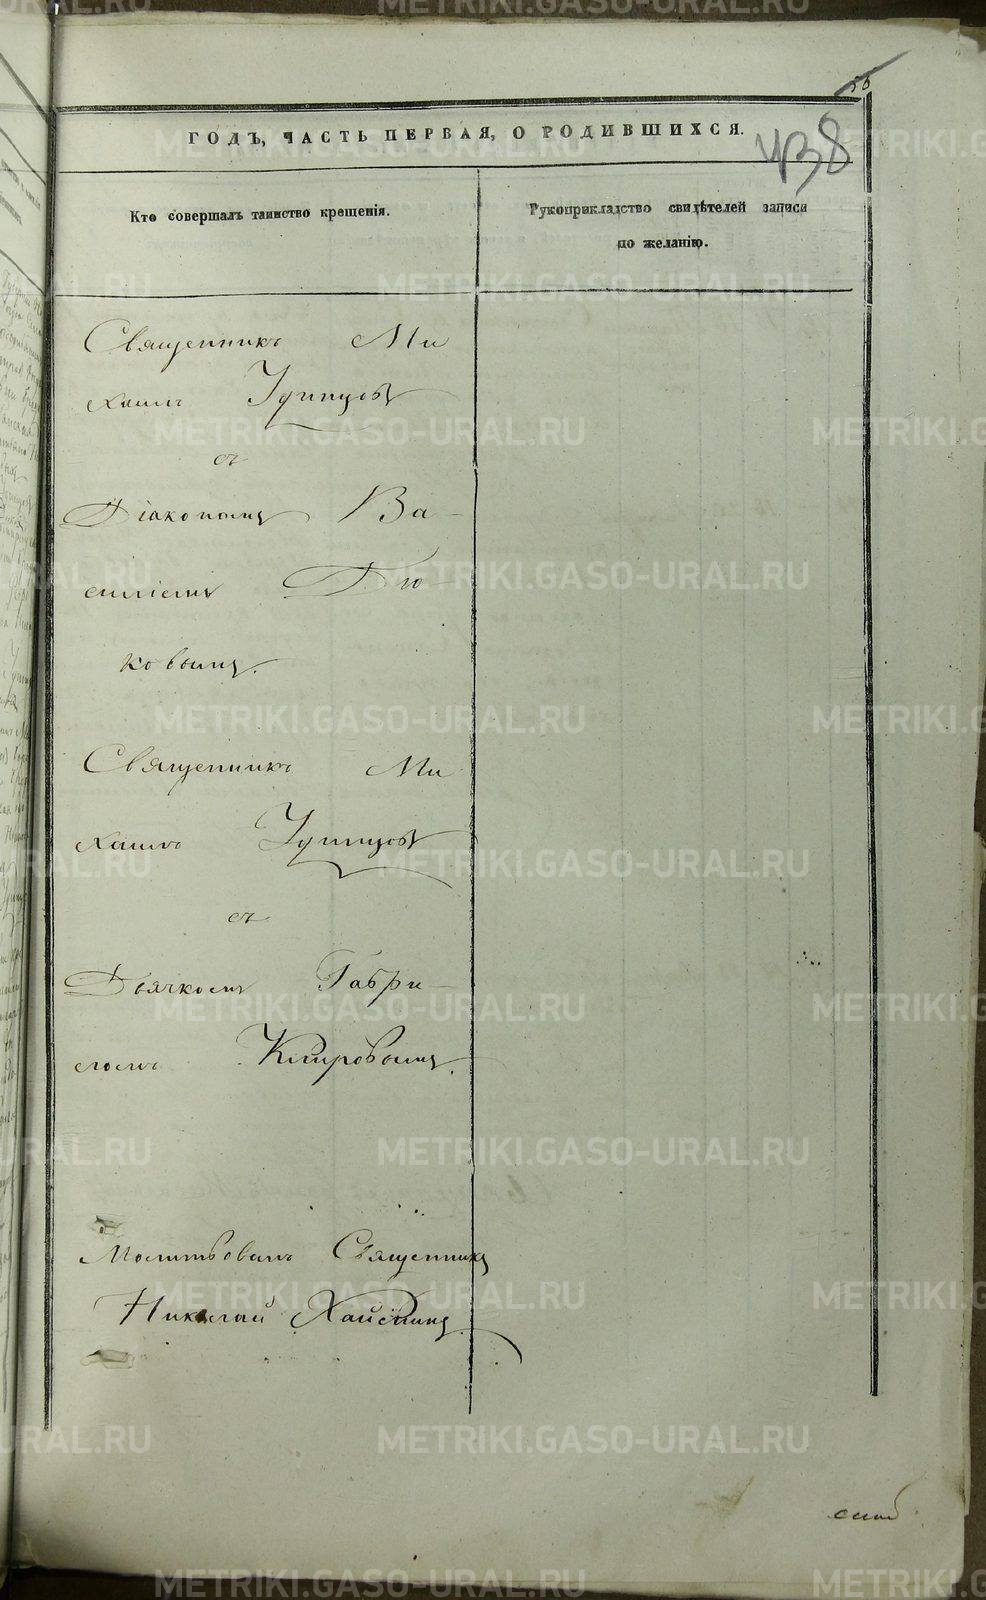 56
ГОДЪ, ЧАСТЬ ПЕРВАЯ, О РОДИВШИХСЯ.
438
Кто совершалъ таинство крещенія.
Рукоприкладство свидѣтелей записи
по желанію.
Священникъ Ми
хаилъ Удинцовъ
съ
Діакономъ Ва-
силіемъ
ковымъ.
Священникъ Ми
хаилъ Удинцовъ
съ
Дьячкомъ Гаври-
ломъ Кпировымъ.
Молитвовалъ Священникъ
Николай
METRIKI.GASO-URAL.RU